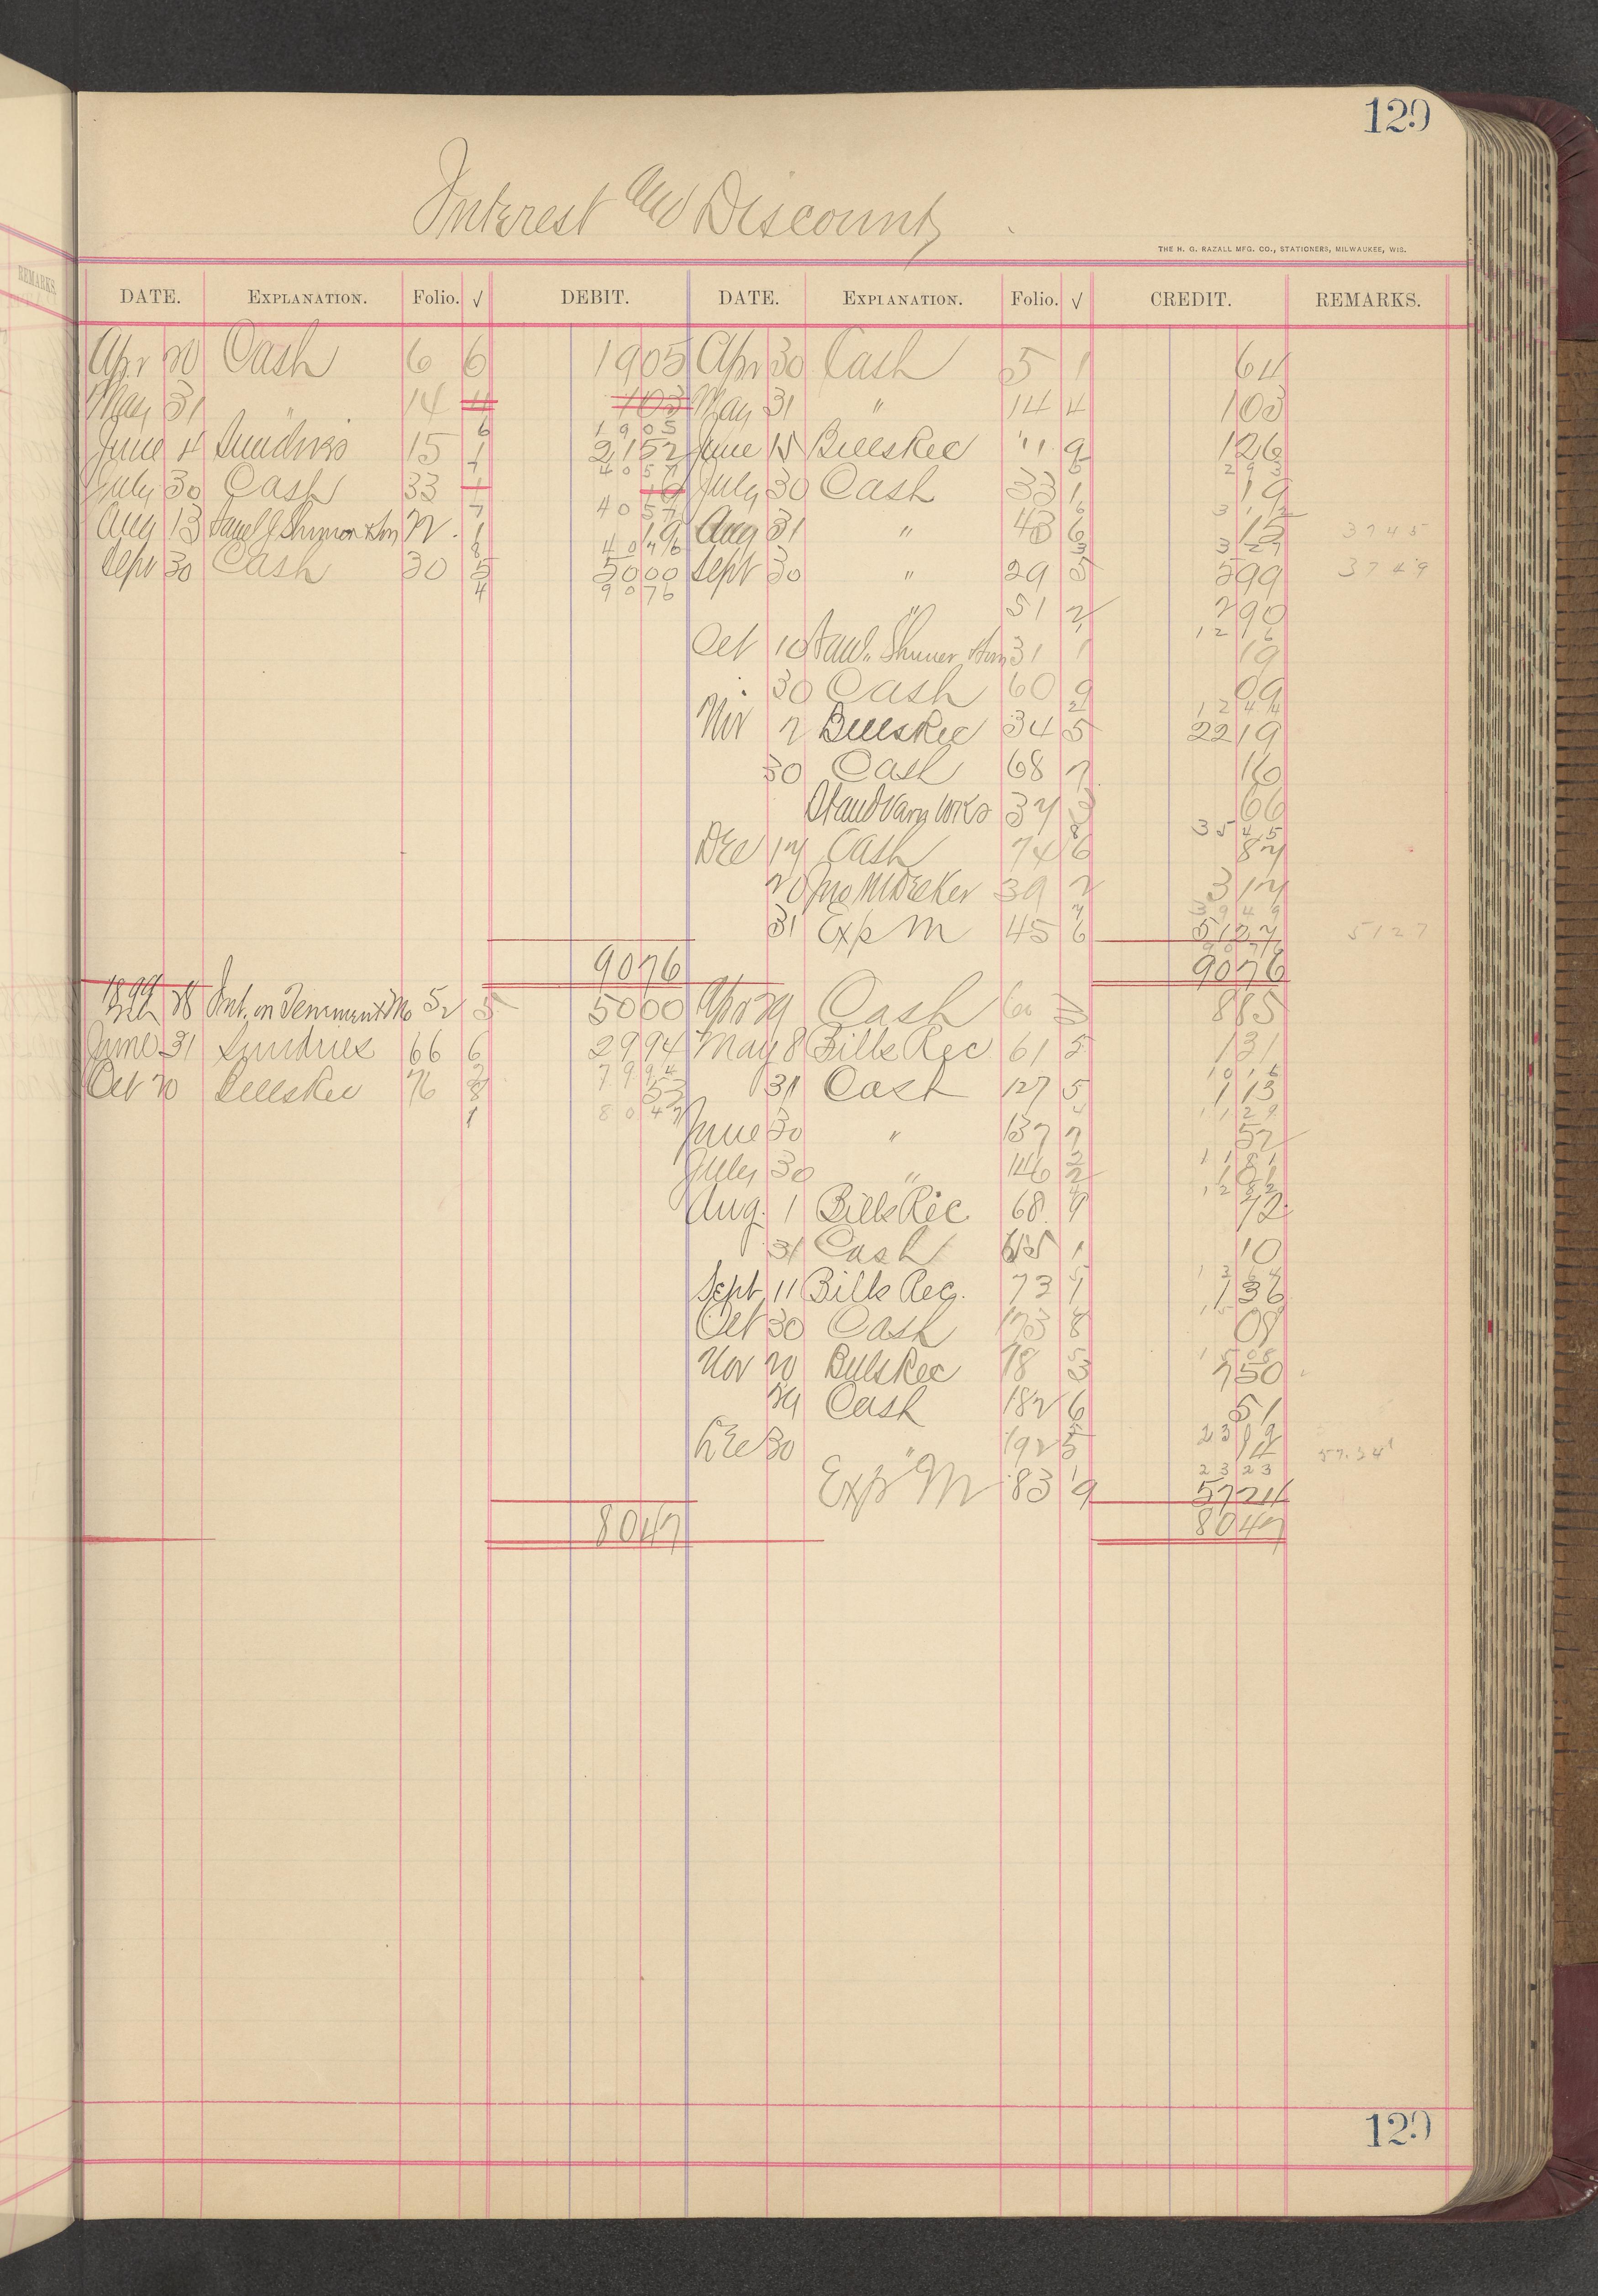 129
Interest and Discount
THE H. G. RAZALL MFG. CO., STATIONERS, MILWAUKEE, WIS.
REMARKS.
DATE. EXPLANATION. Folio. √ DEBIT. DATE. EXPLANATION. Folio. √ CREDIT. REMARKS.
Apr 20 Cash 6 6 1905 Apr 30 Cash 5 1 64
May 31 " 14 4 103 May 31 " 14 4 103
6 1905
June 4 Sundries 15 1 2152 June 15 Bills Rec 11 9 126
7 4057 5 293
July 30 Cash 33 1 19 July 30 Cash 33 1 19
7 4057 6 312
Aug 13 & Son 1 19 Aug 31 " 43 6 15 3745
8 4076 3 327
Sept 30 Cash 30 5 5000 Sept 30 " 29 5 599 3749
4 9076
" 51 2 290
1 1216
Oct 10 31 1 19
30 Cash 60 9 09
2 1244
Nov 2 Bills Rec 34 5 2219
30 Cash 68 7 16
Stand Varn Wks 37 3 66
8 3545
Dec 17 Cash 74 6 87
20 Jno M Decker 39 2 317
7 3949
31 Exp M 45 6 5127 5127
9076
9076 9076
1899
Feb 28 Int. on 52 5 5000 Apr 29 Cash 60 885
June 31 Sundries 66 6 2994 May 8 Bills Rec 61 5 131
7994 1016
Oct 20 Bills Rec 76 8 53 31 Cash 127 5 113
1 8047 1129
June 30 " 137 7 52
1181
July 30 " 146 2 101
1282
Aug. 1 Bills Rec 68 9 72
31 Cash 1 10
Sept 11 Bills Rec. 73 1 136
Oct 30 Cash 173 8 08
1508
Nov 20 Bills Rec 78 3 750
29 Cash 182 6 51
2309
Dec 30 " 192 5 14 57.24
2323
Exp M 83 9 5724
8047 8047
129